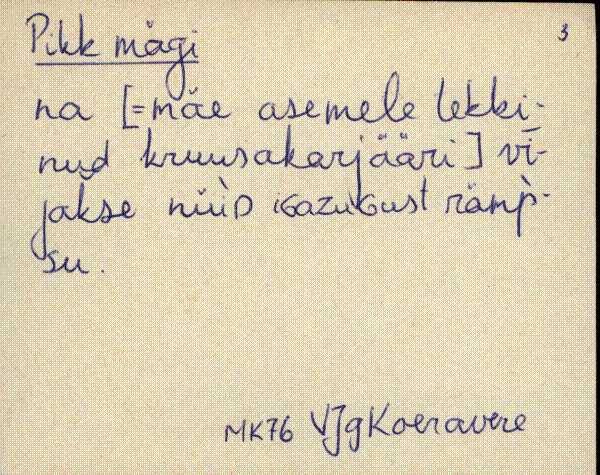 3
Pikk mägi
na [=mäe asemele tekki-
nud kruusakarjääri] vi-
jakse nüüD iGazuGust rämp-
su.
MK76 VJgKoeravere